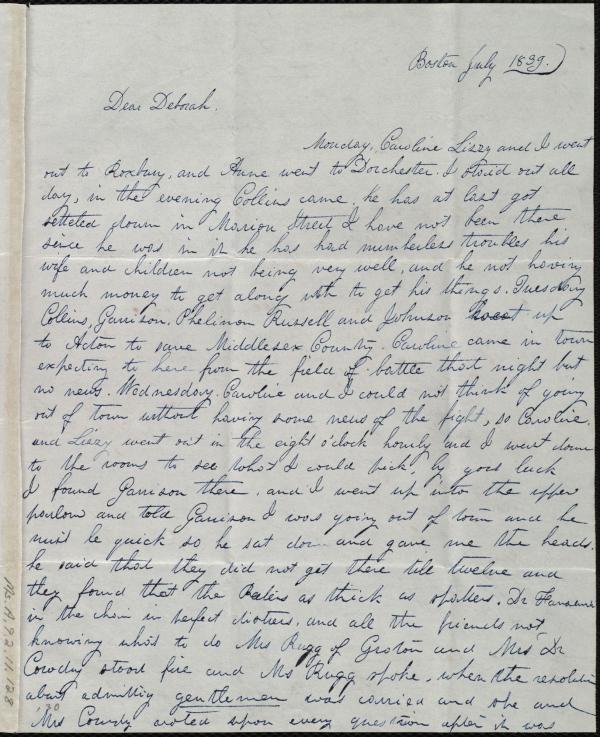 Boston July 1839.)
Dear Deborah.
Monday, Caroline Lizzy and I went
out to Roxbury, and Anne went to Dorchester. I staid out all
day, in the evening Collins came, he has at last got
setteled down in Marion Street I have not been there
since he was in it he has had numberless troubles his
wife and children not being very well, and he not having
much money to get along with to get his things. Tuesday
Collins, Garrison, Phelinon Russell and Johnson went up
to Acton to save Middlesex County. Caroline came in town
expecting to here from the field of battle that night but
no news. Wednesday. Caroline and I could not think of going
out of town without having some news of the fight, so Caroline
and Lizzy went out in the eight o'clock hourly and I went down
to the rooms to see what I could pick, by good luck
I found Garrison there, and I went up into the upper
parlour and told Garrison I was going out of town and he
must be quick so he sat down and gave me the heads.
he said that they did not get there till twelve and
they found that the as thick as spatters. Dr Farnsworth
in the chair in perfect diothers, and all the friends not
knowing what to do Mrs Rugg of Groton and Mrs Dr
Cowdry stood fire and Ms Rugg spoke, when the resolution
about admitting gentlemen was carried and she and
Mrs Cowdry voted upon every question after it was
Ms.A.9.2.11.128